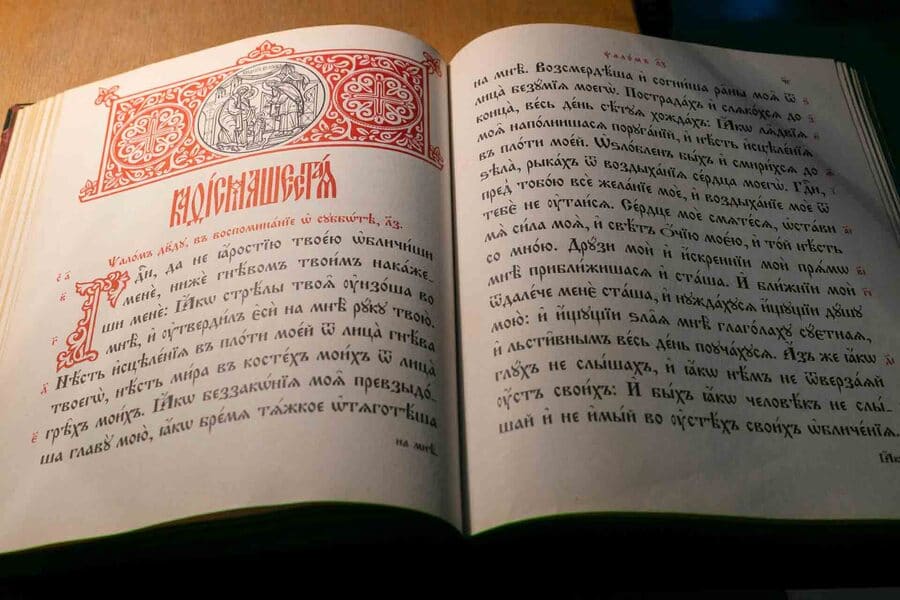 КАѲІСМА ШЕСТАѦ
Ѱало́мъ дв҃ду, въ воспомина́нїе ѡ҆ суббѡ́тѣ, л҃з.
Гдⷭ҇и, да не ꙗ҆́ростїю твое́ю ѡ҆бличи́ши
менѐ, нижѐ гнѣ́вомъ твои́мъ нака́же-
ши менѐ: Ꙗ҆́кѡ стрѣ́лы твоѧ̑ ᲂу҆нзо́ша во
мнѣ̀, и҆ ᲂу҆тверди́лъ є҆сѝ на мнѣ̀ рꙋ́кꙋ твою̀.
Нѣ́сть и҆сцѣле́нїѧ въ пло́ти мое́й ѿ лица̀ гнѣ́ва
твоегѡ̀, нѣ́сть ми́ра въ косте́хъ мои́хъ ѿ лица̀
грѣ̑хъ мои́хъ. Ꙗ҆́кѡ беззакѡ́нїѧ моѧ̑ превзыдо́-
ша главꙋ̀ мою̀, ꙗ҆́кѡ бре́мѧ тѧ́жкое ѡ҆тѧготѣ́ша
на мнѣ̀.
Ѱало́мъ л҃з
на мнѣ̀. Возсмердѣ́ша и҆ согни́ша ра̑ны моѧ̑ ѿ
лица̀ безꙋ́мїѧ моегѡ̀. Пострада́хъ и҆ слѧко́хсѧ до
конца̀, ве́сь де́нь сѣ́тꙋѧ хожда́хъ: Ꙗ҆́кѡ лѧ̑двїѧ
моѧ̑ напо́лнишасѧ порꙋга́нїй, и҆ нѣ́сть и҆сцѣле́нїѧ
въ пло́ти мое́й. Ѡ҆ѕло́бленъ бы́хъ и҆ смири́хсѧ до
ѕѣла̀, рыка́хъ ѿ воздыха́нїѧ се́рдца моегѡ̀. Гдⷭ҇и,
пред̾ тобо́ю всѐ жела́нїе моѐ, и҆ воздыха́нїе моѐ ѿ
тебє̀ не ᲂу҆таи́сѧ. Се́рдце моѐ смѧте́сѧ, ѡ҆ста́ви
мѧ̀ си́ла моѧ̀, и҆ свѣ́тъ ѻ҆́чїю моє́ю, и҆ то́й нѣ́сть
со мно́ю. Дрꙋ́зи моѝ и҆ и҆́скреннїи моѝ прѧ́мѡ
мнѣ̀ прибли́жишасѧ и҆ ста́ша. И҆ бли́жнїи моѝ
ѿдале́че менє̀ ста́ша, и҆ нꙋжда́хꙋсѧ и҆́щꙋщїи дꙋ́шꙋ
мою̀: и҆ и҆́щꙋщїи ѕла̑ѧ мнѣ̀ глаго́лахꙋ сꙋ́єтнаѧ,
и҆ льсти̑внымъ ве́сь де́нь поꙋча́хꙋсѧ. А҆́зъ же ꙗ҆́кѡ
глꙋ́хъ не слы́шахъ, и҆ ꙗ҆́кѡ нѣ́мъ не ѿверза́ѧй
ᲂу҆́стъ свои́хъ: И҆ бы́хъ ꙗ҆́кѡ человѣ́къ не слы́-
шай и҆ не и҆мы́й во ᲂу҆стѣ́хъ свои́хъ ѡ҆бличе́нїѧ.
Ꙗ҆́кѡ